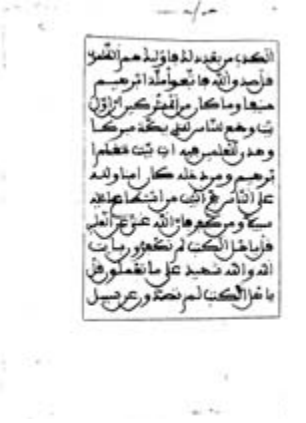 الكذب من بعد ذلك فاولئك هم الظلمون
قل صدق الله فاتبعوا ملة ابرهيم
حنيفا وما كان من المشركين ان اول
بيت وضع للناس للذي ببكة مبركا
وهدى للعلمين فيه ايت بينت مقام ا
برهيم ومن دخله كان امنا ولله
على الناس حج البيت من استطاع اليه
سبيلا ومن كفر فان الله غني عن العلمين
قل ياهل الكتب لم تكفرون بايت
الله والله شهيد على ما تعملون قل
ياهل الكتب لم تصدون عن سبيل